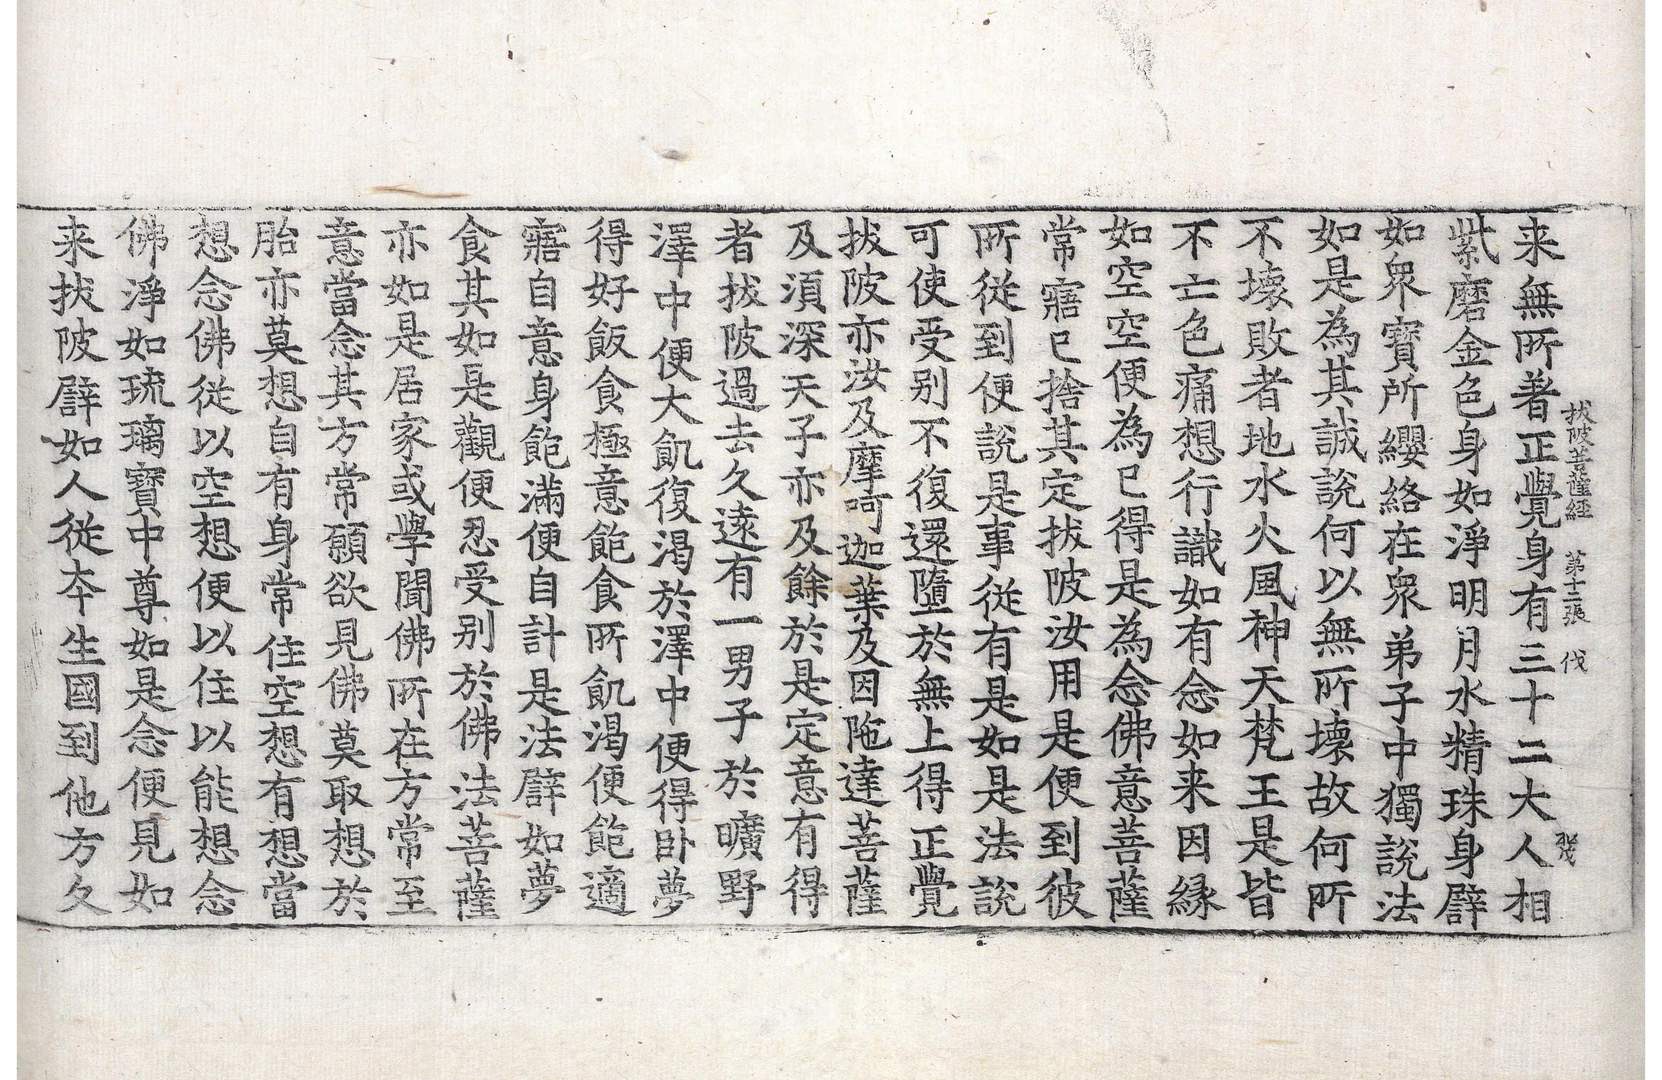 来無所著正覺身有三十二大人相
紫磨金色身如淨明月水精珠身譬
如衆寶所纓絡在衆弟子中獨說法
如是為其誠說何以無所壞故何所
不壞敗者地水火風神天梵王是皆
不亡色痛想行識如有念如来因縁
如空空便為已得是為念佛意菩薩
常寤已捨其定拔陂汝用是便到彼
所從到便說是事從有是如是法說
可使受别不復還墮於無上得正覺
拔陂亦汝及摩呵迦葉及因陁達菩薩
及湏深天子亦及餘於是定意有得
者拔陂過去久遠有一男子於曠野
澤中便大飢復渴於澤中便得卧夢
得好飯食極意飽食所飢渴便飽適
寤自意身飽滿便自計是法譬如夢
食其如是觀便忍受别於佛法菩薩
亦如是居家或學聞佛所在方常至
意當念其方常願欲見佛莫取想於
胎亦莫想自有身常住空想有想當
想念佛從以空想便以住以能想念
佛淨如琉璃寶中尊如是念便見如
来拔陂譬如人從夲生國到他方久
拔陂菩薩經　第十二張　伐